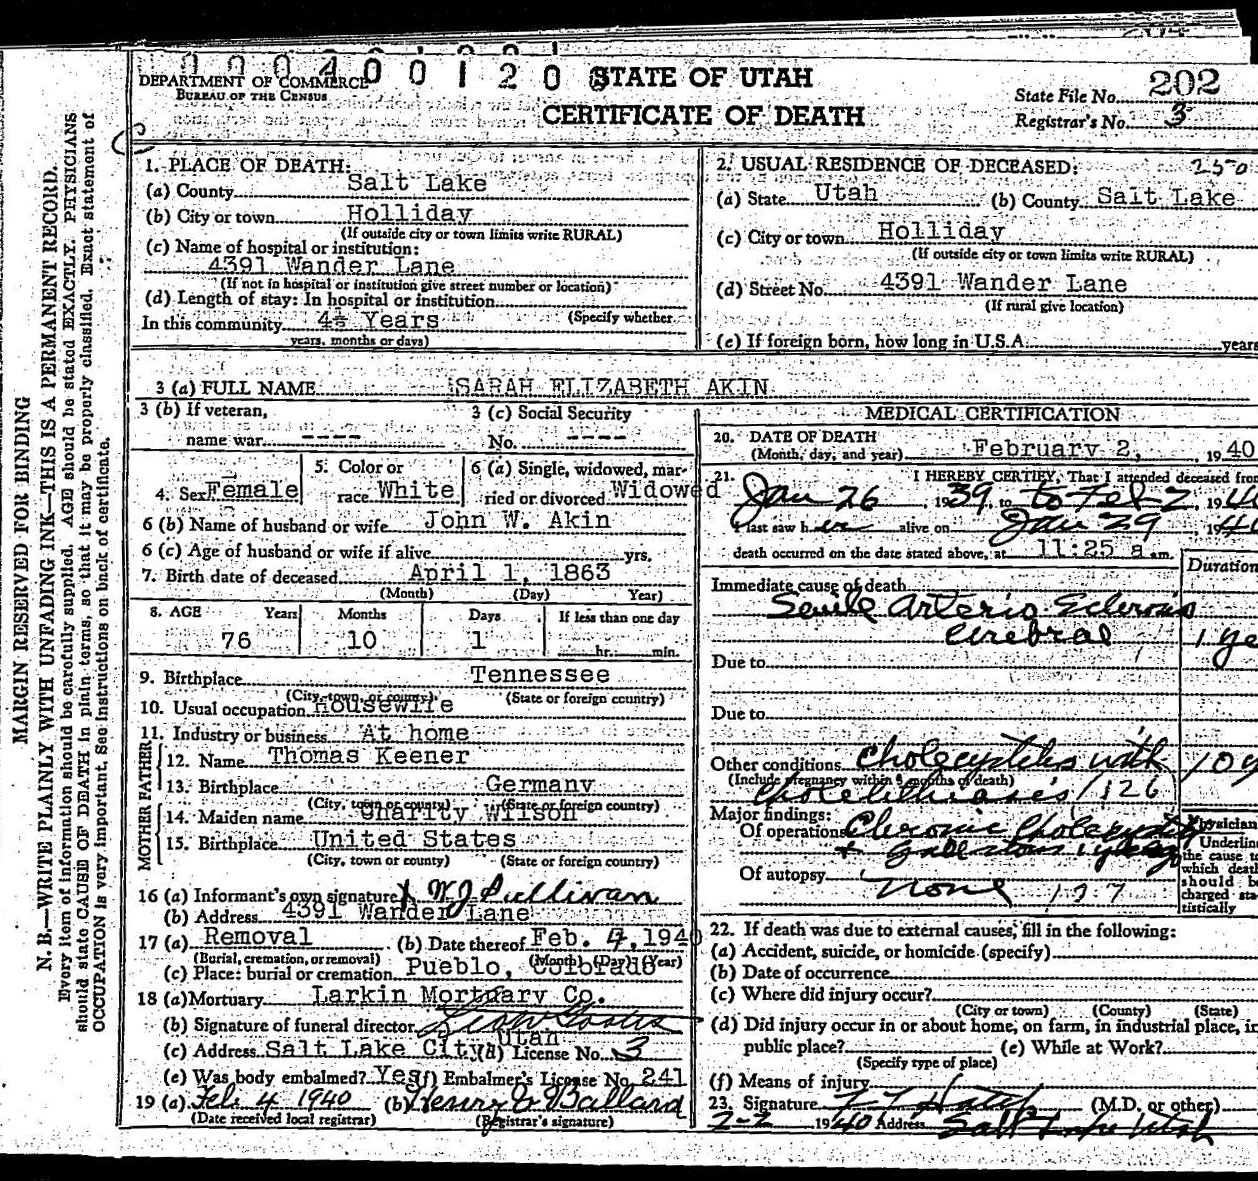 0 0 0 4 0 0 1 2 0
STATE OF UTAH
CERTIFICATE OF DEATH
DEPARTMENT OF COMMERCE
BUREAU OF THE CENSUS
State File No. 202
Registrar's No. 3
MARGIN RESERVED FOR BINDING
N. B.—WRITE PLAINLY WITH UNFADING INK—THIS IS A PERMANENT RECORD.
Every item of information should be carefully supplied. AGE should be stated EXACTLY. PHYSICIANS
should state CAUSE OF DEATH in plain terms, so that it may be properly classified. Exact statement of
OCCUPATION is very important. See instructions on back of certificate.
1. PLACE OF DEATH:
(a) County Salt Lake
(b) City or town Holliday
(If outside city or town limits write RURAL)
(c) Name of hospital or institution:
4391 Wander Lane
(If not in hospital or institution give street number or location)
(d) Length of stay: In hospital or institution
In this community 4½ Years (Specify whether
years, months or days)
2. USUAL RESIDENCE OF DECEASED: 250
(a) State Utah (b) County Salt Lake
(c) City or town Holliday
(If outside city or town limits write RURAL)
(d) Street No. 4391 Wander Lane
(If rural give location)
(e) If foreign born, how long in U.S.A. years
3 (a) FULL NAME SARAH ELIZABETH AKIN
3 (b) If veteran, 3 (c) Social Security
name war ---- No. ----
4. Sex Female 5. Color or race White 6 (a) Single, widowed, married or divorced Widowed
6 (b) Name of husband or wife John W. Akin
6 (c) Age of husband or wife if alive yrs.
7. Birth date of deceased April 1, 1863
(Month) (Day) Year)
8. AGE Years Months Days If less than one day
76 10 1 hr. min.
9. Birthplace Tennessee
(City, town, or county) (State or foreign country)
10. Usual occupation Housewife
11. Industry or business At home
FATHER
12. Name Thomas Keener
13. Birthplace Germany
(City, town or county) (State or foreign country)
MOTHER
14. Maiden name Charity Wilson
15. Birthplace United States
(City, town or county) (State or foreign country)
16 (a) Informant's own signature W J Sullivan
(b) Address 4391 Wander Lane
17 (a) Removal (b) Date thereof Feb. 4, 1940
(Burial, cremation, or removal) (Month) (Day) (Year)
(c) Place: burial or cremation Pueblo, Colorado
18 (a) Mortuary Larkin Mortuary Co.
(b) Signature of funeral director
(c) Address Salt Lake City Utah (d) License No. 3
(e) Was body embalmed? Yes (f) Embalmer's License No. 241
19 (a) Feb. 4 1940 (b) Henry E Ballard
(Date received local registrar) (Registrar's signature)
MEDICAL CERTIFICATION
20. DATE OF DEATH
(Month, day, and year) February 2, 1940
21. I HEREBY CERTIFY, That I attended deceased from
Jan 26 1939, to Feb 2 194
I last saw her alive on Jan 29 1940
death occurred on the date stated above, at 11:25 a m.
Duration
Immediate cause of death
Senile Arterio Sclerosis
Cerebral 1 ye
Due to
Due to
Other conditions Cholecystitis with 10 y
(Include pregnancy within 3 months of death)
Cholelithiasis 126
Major findings:
Of operations Chronic Cholecystitis
+ Gallstones
Of autopsy none 127
Physician
Underline
the cause to
which death
should be
charged sta-
tistically
22. If death was due to external causes, fill in the following:
(a) Accident, suicide, or homicide (specify)
(b) Date of occurrence
(c) Where did injury occur?
(City or town) (County) (State)
(d) Did injury occur in or about home, on farm, in industrial place, in
public place? (e) While at Work?
(Specify type of place)
(f) Means of injury
23. Signature (M.D. or other)
2-2 1940 Address Salt Lake Utah